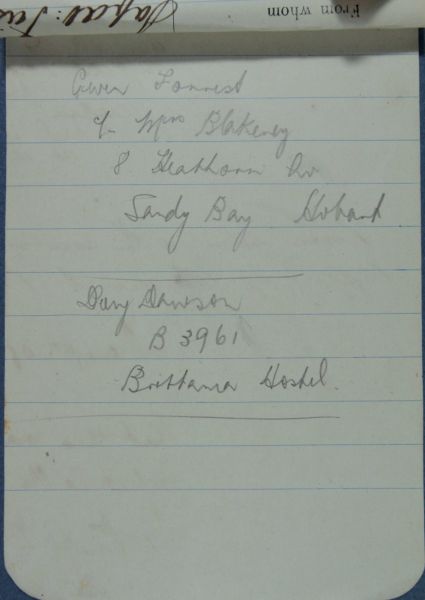 From whom
Gwen Forrest
c/- Mrs Blakeney
8 Heathorn Av
Sandy Bay Hobart
Dawson
B 3961
Brittania Hostel.